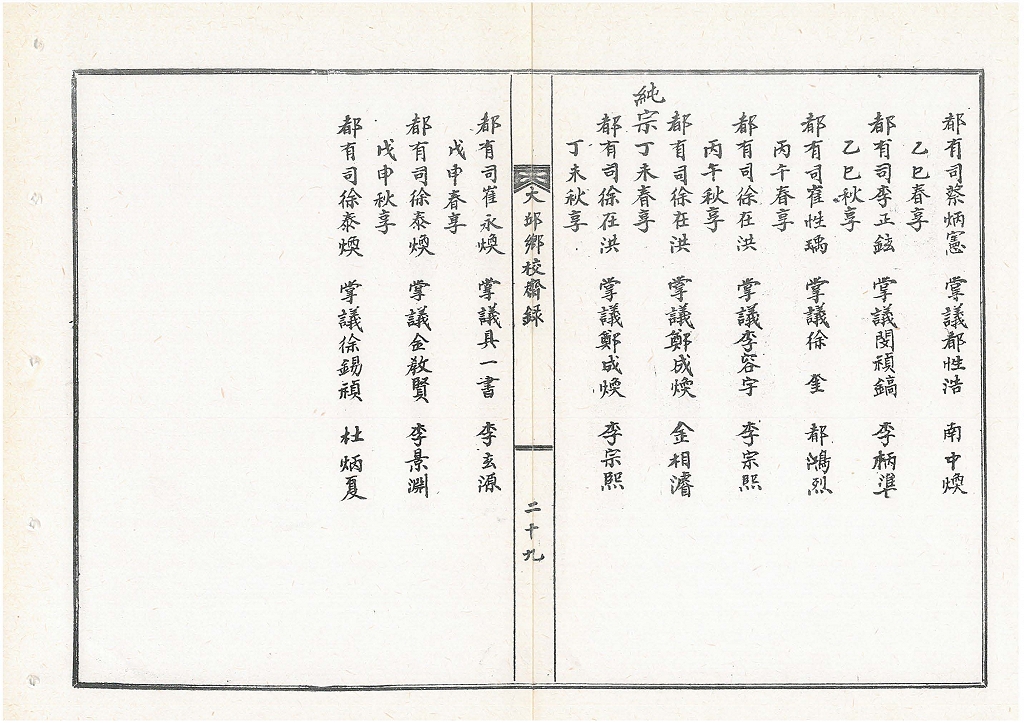 都有司蔡炳憲 掌議都性浩 南中煥
乙巳春享
都有司李正鉉 掌議閔禎鎬 李柄準
乙巳秋享
都有司崔性瑀 掌議徐 奎 都鴻烈
丙午春享
都有司徐在洪 掌議李容宇 李宗熙
丙午秋享
都有司徐在洪 掌議鄭成煥 金相濬
純宗丁未春享
都有司徐在洪 掌議鄭成煥 李宗熙
丁未秋享
大邱鄉校齋録
二十九
都有司崔永煥 掌議具一書 李玄源
戊申春享
都有司徐泰煥 掌議金敎賢 李景淵
戊申秋享
都有司徐泰煥 掌議徐錫禎 杜炳夏